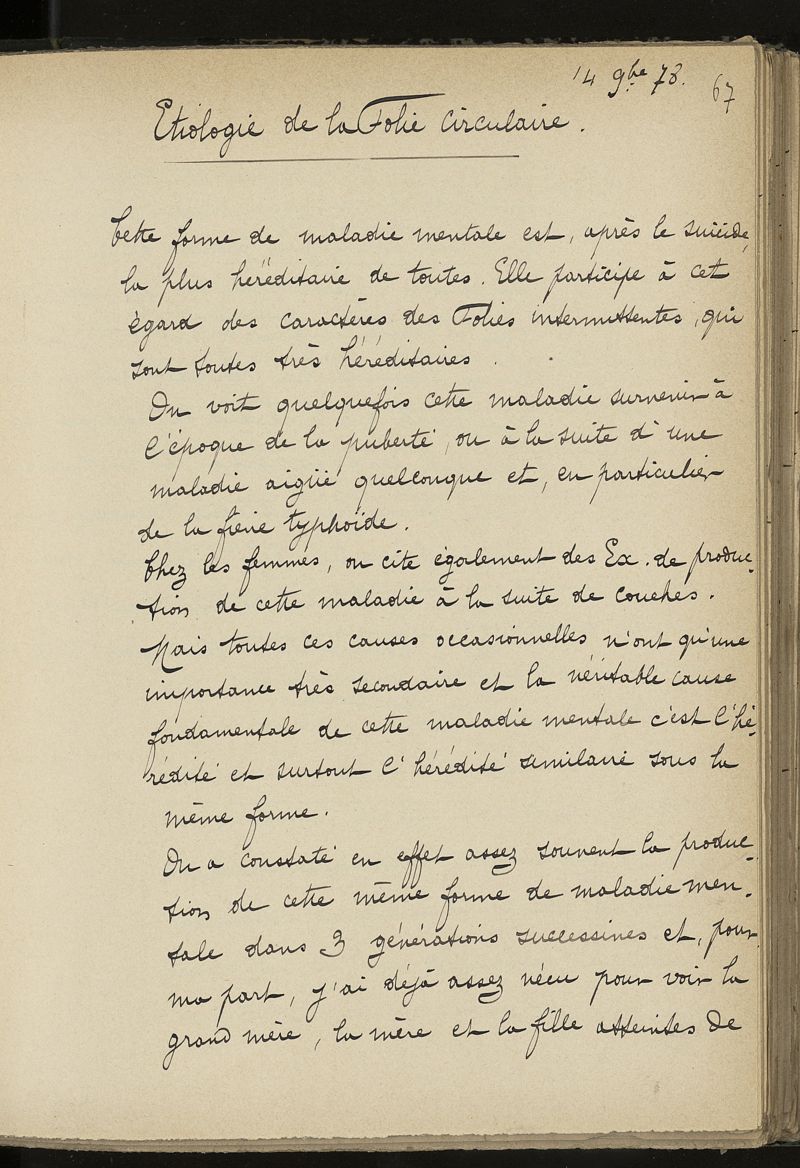 14 9bre 78.
67
Etiologie de la Folie Circulaire.
Cette forme de maladie mentale est, après le suicide,
la plus héréditaire de toutes. Elle participe à cet
égard des caractères des Folies intermittentes, qui
sont toutes très héréditaires.
On voit quelquefois cette maladie survenir à
l'époque de la puberté, ou à la suite d'une
maladie aigüe quelconque et, en particulier
de la fièvre typhoïde.
Chez les femmes, on cite également des Ex. de produc-
tion de cette maladie à la suite de couches.
Mais toutes ces causes occasionnelles n'ont qu'une
importance très secondaire et la véritable cause
fondamentale de cette maladie mentale c'est l'hé-
rédité et surtout l'hérédité similaire sous la
même forme.
On a constaté en effet assez souvent la produc-
tion de cette même forme de maladie men-
tale dans 3 générations successives et, pour
ma part, j'ai déjà assez vécu pour voir la
grand mère, la mère et la fille atteintes de